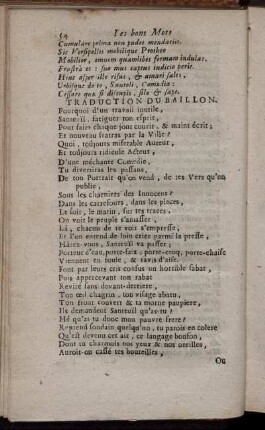 54 Les bons Mots
Cumulare prima non pudet mendacia.
Sic Versipellis mobilique Protheo
Mobilior, omnem quamlibet formam indulas.
Frustrà et : suo mus captus indicio perit.
Hinc asper ille risus, & amari sales,
Urbisque de te, Santoli, Comœdia :
Cessare quæ si discupis, sile & sape.
TRADUCTION DU BAILLON.
Pourquoi d'un travail inutile,
Santeüil, fatiguer ton esprit,
Pour faire chaque jour courir, & maint écrit;
Et nouveau fratras par la Ville ?
Quoi, toûjours miserable Auteur,
Et toûjours ridicule Acteur,
D'une méchante Comédie,
Tu divertiras les passans,
De ton Portrait qu'on vend, de tes Vers qu'on
publie,
Sous les charniers des Innocens ?
Dans les carrefours, dans les places,
Le soir, le matin, sur tes traces,
On voit le peuple s'amasser,
Là, chacun de te voir s'empresse,
Et l'on entend de loin crier parmi la presse,
Hâtez-vous, Santeüil va passer ;
Porteur d'eau, porte-faix, porte-crocq, porte-chaise
Viennent en foule, & ravis d'aise.
Font par leurs cris confus un horrible sabat,
Puis appercevant ton rabat
Reviré sans devant-derriere,
Ton œil chagrin, ton visage abatu,
Ton front couvert & ta morne paupiere,
Ils demandent Santeüil qu'as-tu ?
Hé qu'as-tu donc mon pauvre frere ?
Reprend soudain quelqu'un, tu parois en colere
Qu'est devenu cet air, ce langage bouffon,
Dont tu charmois nos yeux & nos oreilles,
Auroit-on cassé tes bouteilles,
Ou